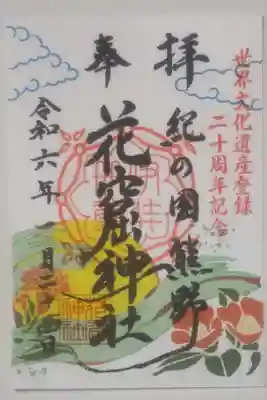 世界文化遺産登録
二十周年記念
奉拝
紀の国熊野
花窟神社
令和六年一月二十
日